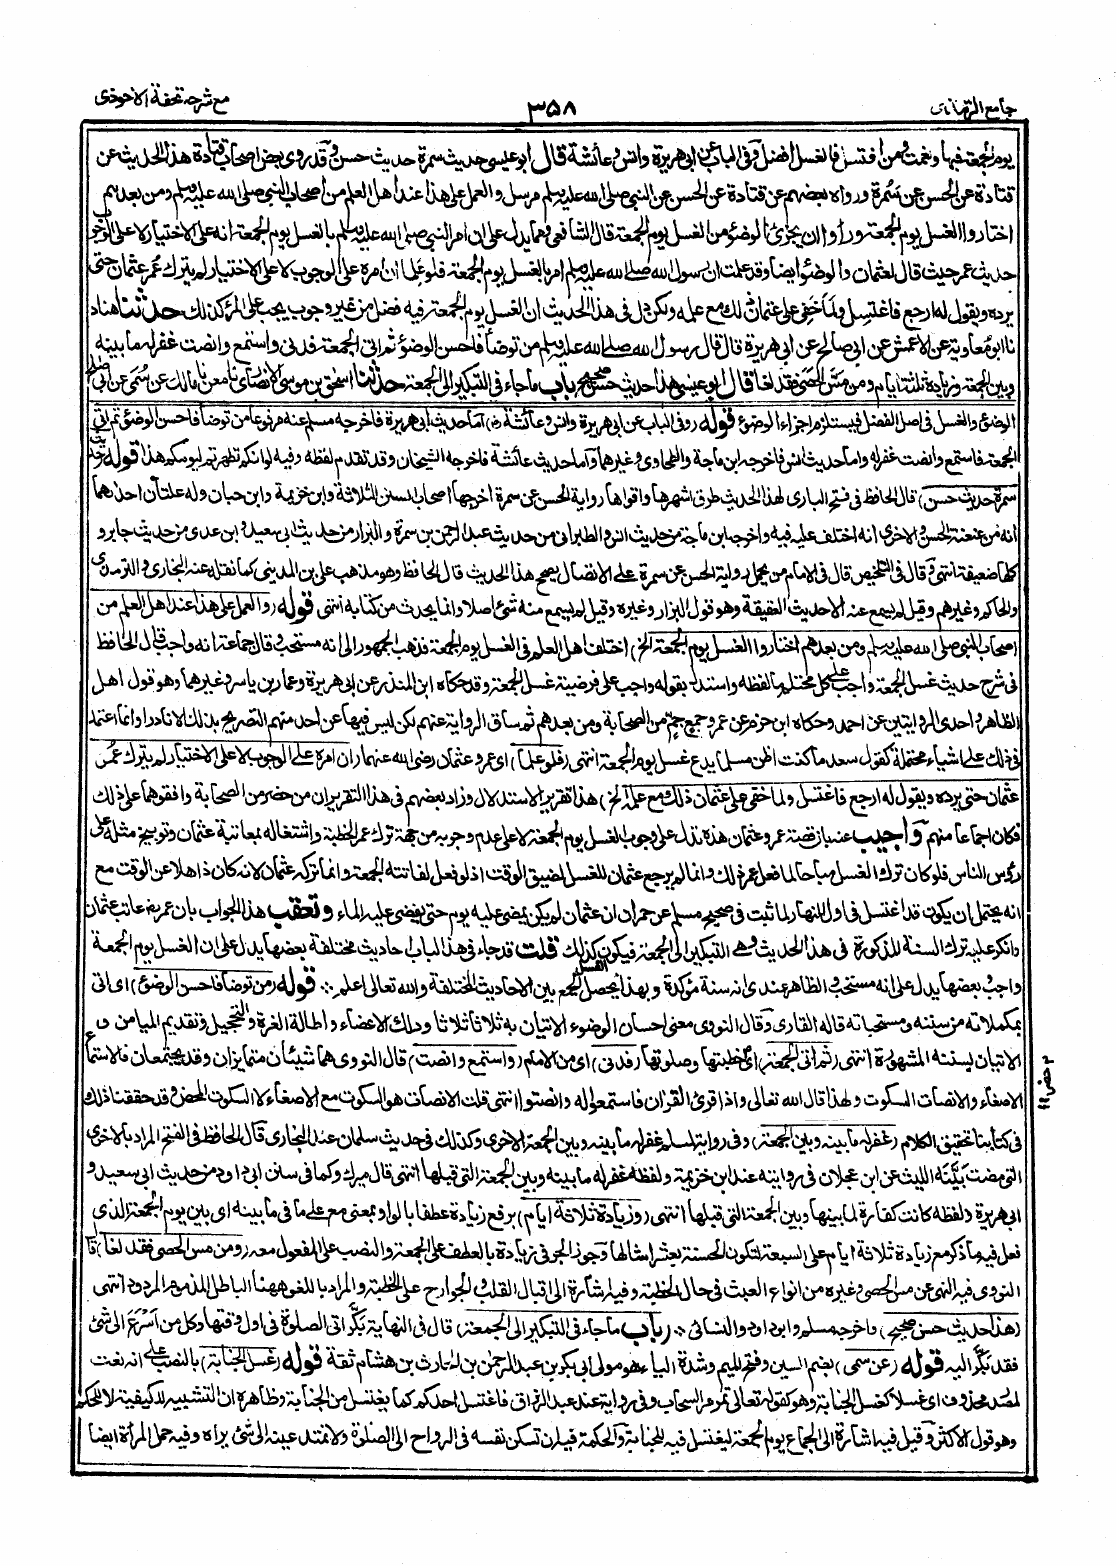 جامع الترمذی
۳۵۸
مع شرحه تحفة الاحوذی
يوم الجمعة فبها ونعمت ومن اغتسل فالغسل افضل وفى الباب عن ابى هريرة وانس وعائشة قال ابو عيسى حديث سمرة حديث حسن وقد روى بعض اصحاب قتادة هذا الحديث عن
قتادة عن الحسن عن سمرة ورواه بعضهم عن قتادة عن الحسن عن النبى صلى الله عليه وسلم مرسل والعمل على هذا عند اهل العلم من اصحاب النبى صلى الله عليه وسلم ومن بعدهم
اختاروا الغسل يوم الجمعة ورأوا ان يجزئ الوضوء من الغسل يوم الجمعة قال الشافعى ومما يدل على ان امر النبى صلى الله عليه وسلم بالغسل يوم الجمعة انه على الاختيار لا على الوجوب
حديث عمر حيث قال لعثمان والوضوء ايضا وقد علمت ان رسول الله صلى الله عليه وسلم امر بالغسل يوم الجمعة فلو علما ان امره على الوجوب لا على الاختيار لم يترك عمر عثمان حتى
يرده ويقول له ارجع فاغتسل ولما خفى على عثمان ذلك مع علمه ولكن دل فى هذا الحديث ان الغسل يوم الجمعة فيه فضل من غير وجوب يجب على المرء كذلك حدثنا هناد
نا ابو معاوية عن الاعمش عن ابى صالح عن ابى هريرة قال قال رسول الله صلى الله عليه وسلم من توضأ فاحسن الوضوء ثم اتى الجمعة فدنى واستمع وانصت غفر له ما بينه
وبين الجمعة وزيادة ثلثة ايام ومن مس الحصى فقد لغا قال ابو عيسى هذا حديث حسن صحيح باب ما جاء فى التبكير الى الجمعة حدثنا اسحق بن موسى الانصارى نا معن نا مالك عن سمى عن ابى صالح
الوضوء والغسل فى اصل الفضل فيستلزم اجزاء الوضوء قوله (وفى الباب عن ابى هريرة وانس وعائشة) اما حديث ابى هريرة فاخرجه مسلم عنه مرفوعا من توضأ فاحسن الوضوء ثم اتى
الجمعة فاستمع وانصت غفر له واما حديث انس فاخرجه ابن ماجة والطحاوى وغيرهما واما حديث عائشة فاخرجه الشيخان وقد تقدم لفظه وفيه لو انكم تطهرتم ليومكم هذا قوله (حديث
سمرة حديث حسن) قال الحافظ فى فتح البارى لهذا الحديث طرق اشهرها واقواها رواية الحسن عن سمرة اخرجها اصحاب السنن الثلاثة وابن خزيمة وابن حبان وله علتان احدٰهما
انه من عنعنة الحسن والاخرى انه اختلف عليه فيه واخرجه ابن ماجة من حديث انس والطبرانى من حديث عبد الرحمن بن سمرة والبزار من حديث ابى سعيد وابن عدى من حديث جابر و
كلها ضعيفة انتهى وقال فى التلخيص قال فى الامام من يحمل رواية الحسن عن سمرة على الاتصال يصحح هذا الحديث قال الحافظ وهو مذهب على بن المدينى كما نقله عنه البخارى والترمذى
والحاكم وغيرهم وقيل لم يسمع عنه الا حديث العقيقة وهو قول البزار وغيره وقيل لم يسمع منه شئ اصلا وانما يحدث من كتابه انتهى قوله (والعمل على هذا عند اهل العلم من
اصحاب النبى صلى الله عليه وسلم ومن بعدهم اختاروا الغسل يوم الجمعة الخ) اختلف اهل العلم فى الغسل يوم الجمعة فذهب الجمهور الى انه مستحب وقال جماعة انه واجب قال الحافظ
فى شرح حديث غسل الجمعة واجب على كل محتلم ما لفظه واستدل بقوله واجب على فرضية غسل الجمعة وقد حكاه ابن المنذر عن ابى هريرة وعمار بن ياسر وغيرهما وهو قول اهل
الظاهر واحدى الروايتين عن احمد وحكاه ابن حزم عن عمر وجمع جم من الصحابة ومن بعدهم ثم ساق الرواية عنهم لكن ليس فيها عن احد منهم التصريح بذلك الا نادرا وانما اعتمد
فى ذلك على اشياء محتملة كقول سعد ما كنت اظن مسلما يدع غسل يوم الجمعة انتهى (فلو علما) اى عمر وعثمان رضى الله عنهما (ان امره على الوجوب لا على الاختيار لم يترك عمر
عثمان حتى يرده ويقول له ارجع فاغتسل ولما خفى على عثمان ذلك مع علمه الخ) هذا تقرير الاستدلال وزاد بعضهم فى هذا التقرير ان من حضر من الصحابة وافقوهما على ذلك
فكان اجماعا منهم واجيب عنه بان قصة عمر وعثمان هذه تدل على وجوب الغسل يوم الجمعة لا على عدم وجوبه من جهة ترك عمر الخطبة واشتغاله بمعاتبة عثمان وتوبيخ مثله على
رؤس الناس فلو كان ترك الغسل مباحا لما فعل عمر ذلك وانما لم يرجع عثمان للغسل لضيق الوقت اذ لو فعل لفاتته الجمعة وانما تركه عثمان لانه كان ذاهلا عن الوقت مع
انه يحتمل ان يكون قد اغتسل فى اول النهار لما ثبت فى صحيح مسلم عن حمران ان عثمان لم يكن يمضى عليه يوم حتى يفيض عليه الماء وتعقب هذا الجواب بان عمر رض عاتب عثمان
وانكر عليه ترك السنة المذكورة فى هذا الحديث وهى التبكير الى الجمعة فيكون كذلك قلت قد جاء فى هذا الباب احاديث مختلفة بعضها يدل على ان الغسل يوم الجمعة
واجب وبعضها يدل على انه مستحب والظاهر عندى انه سنة مؤكدة وبهذا يحصل الجمع بين الاحاديث المختلفة والله تعالى اعلم قوله (من توضأ فاحسن الوضوء) اى اتى
بمكملاته من سننه ومستحباته قاله القارى وقال النووى معنى احسان الوضوء الاتيان به ثلاثا ثلاثا ودلك الاعضاء واطالة الغرة والتحجيل وتقديم الميامن و
الاتيان بسننه المشهورة انتهى (ثم اتى الجمعة) اى خطبتها وصلوتها (فدنى) اى من الامام (واستمع وانصت) قال النووى هما شيئان متمايزان وقد يجتمعان فالاستماع
الاصغاء والانصات السكوت ولهذا قال الله تعالى واذا قرئ القرآن فاستمعوا له وانصتوا انتهى قلت الانصات هو السكوت مع الاصغاء لا السكوت المحض وقد حققت ذلك
فى كتابنا تحقيق الكلام (غفر له ما بينه وبين الجمعة) وفى رواية لمسلم غفر له ما بينه وبين الجمعة الاخرى وكذلك فى حديث سلمان عند البخارى قال الحافظ فى الفتح المراد بالاخرى
التى مضت بينه الليث عن ابن عجلان فى روايته عند ابن خزيمة ولفظه غفر له ما بينه وبين الجمعة التى قبلها انتهى قال ميرك وكما فى سنن ابى داود من حديث ابى سعيد و
ابى هريرة ولفظه كانت كفارة لما بينها وبين الجمعة التى قبلها انتهى (وزيادة ثلاثة ايام) برفع زيادة عطفا بالواو بمعنى مع على ما فى ما بينه اى بين يوم الجمعة الذى
فعل فيه ما ذكر مع زيادة ثلاثة ايام على السبعة لتكون الحسنة بعشر امثالها وجوز الجر فى زيادة بالعطف على الجمعة والنصب على المفعول معه (ومن مس الحصى فقد لغا) قال
النووى فيه النهى عن مس الحصى وغيره من انواع العبث فى حال الخطبة وفيه اشارة الى اقبال القلب والجوارح على الخطبة والمراد باللغو ههنا الباطل المذموم المردود انتهى
(هذا حديث حسن صحيح) واخرجه مسلم وابو داود والنسائى (باب ما جاء فى التبكير الى الجمعة) قال فى النهاية بكّر اتى الصلوة فى اول وقتها وكل من اسرع الى شئ
فقد بكّر اليه قوله (عن سمى) بضم السين وفتح الميم وشدة الياء هو مولى ابى بكر بن عبد الرحمن بن الحارث بن هشام ثقة قوله (غسل الجنابة) بالنصب على انه نعت
لمصدر محذوف اى غسلا كغسل الجنابة وهو كقوله تعالى تمر مر السحاب وفى رواية عند عبد الرزاق فاغتسل احدكم كما يغتسل من الجنابة وظاهره ان التشبيه للكيفية لا للحكم
وهو قول الاكثر وقيل فيه اشارة الى الجماع يوم الجمعة ليغتسل فيه للجنابة والحكمة فيه ان تسكن نفسه فى الرواح الى الصلوة ولا تمتد عينه الى شئ يراه وفيه حمل المرأة ايضا